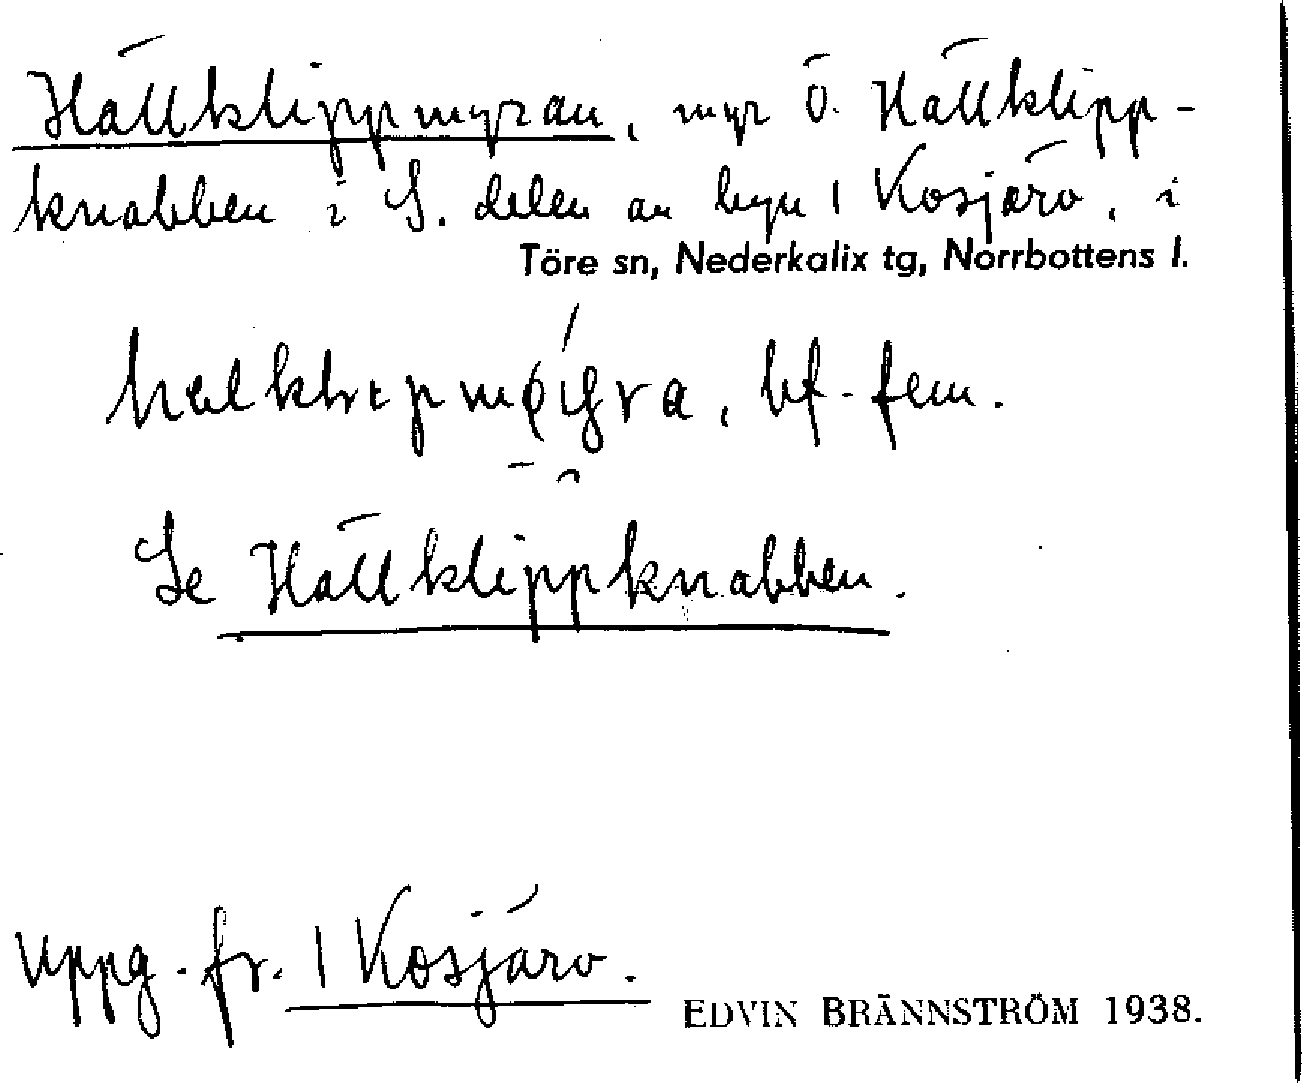 Hällklippmyran, myr Ö. Hällklipp-
knabben i S. delen av byn 1 Kosjärv, i
Töre sn, Nederkalix tg, Norrbottens l.
bf. fem.
Se Hällklippknabben.
uppg. fr. 1 Kosjärv.
EDVIN BRÄNNSTRÖM 1938.